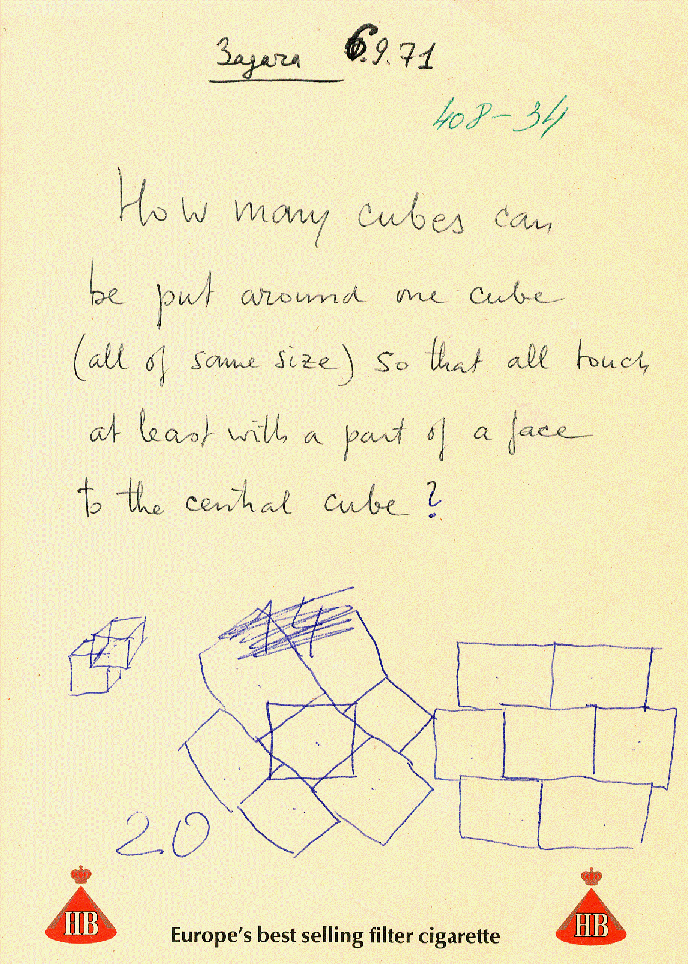 6.9.71
408-34
How many cubes can
be put around one cube
(all of same size) so that all touch
at least with a part of a face
to the central cube?
14
20
HB
Europe's best selling filter cigarette
HB